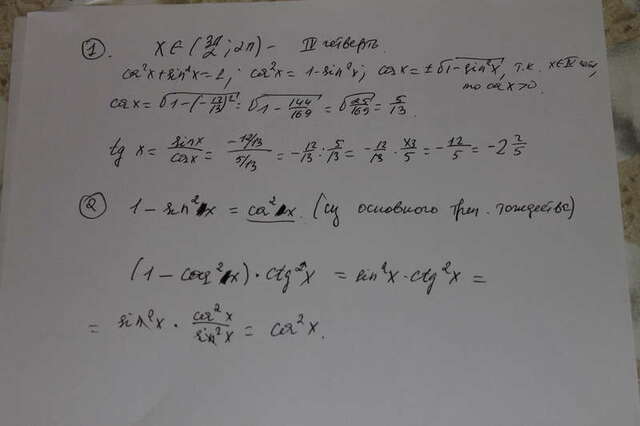 ① x ∈ (3π/2; 2π) – IV четверть.
cos²x + sin²x = 1; cos²x = 1 – sin²x; cos x = ±√(1 – sin²x), т.к. x ∈ IV четв,
то cos x > 0.
cos x = √(1 – (–12/13)²) = √(1 – 144/169) = √(25/169) = 5/13
tg x = sin x / cos x = (–12/13) / (5/13) = –12/13 : 5/13 = –12/13 · 13/5 = –12/5 = –2 2/5
② 1 – sin²x = cos²x. (из основного триг. тождества)
(1 – cos²x) · ctg²x = sin²x · ctg²x =
= sin²x · cos²x / sin²x = cos²x.